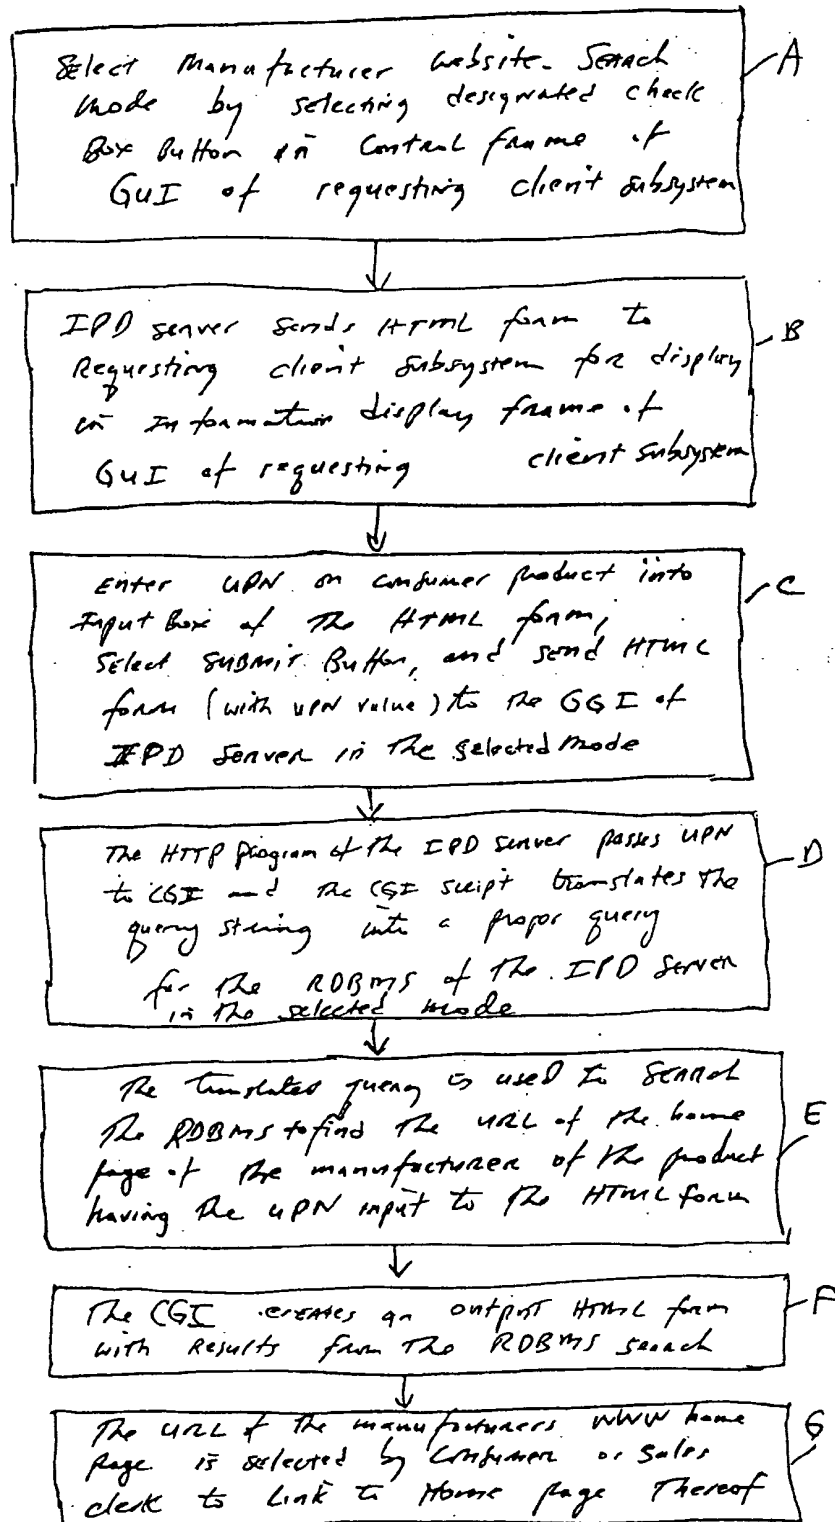 Select Manufacturer Website-Search A
mode by selecting designated check
Box Button in Control frame of
GUI of requesting client subsystem
IPD server sends HTML form to B
Requesting client subsystem for display
in Information display frame of
GUI of requesting client subsystem
Enter UPN on consumer product into C
Input Box of The HTML form,
Select SUBMIT Button, and send HTML
form (with UPN value) to the GGI of
IPD Server in the selected mode
The HTTP program of the IPD server passes UPN D
to CGI and the CGI script translates the
query string into a propor query
for the RDBMS of the IPD Server
in the selected mode
The translated query is used to Search
The RDBMS to find the URL of the home E
page of the manufacturer of the product
having the UPN input to the HTML form
The CGI creates an output HTML form F
with Results from The RDBMS search
The URL of the manufacturers WWW home G
Page is selected by Consumer or Sales
clerk to Link to Home page Thereof